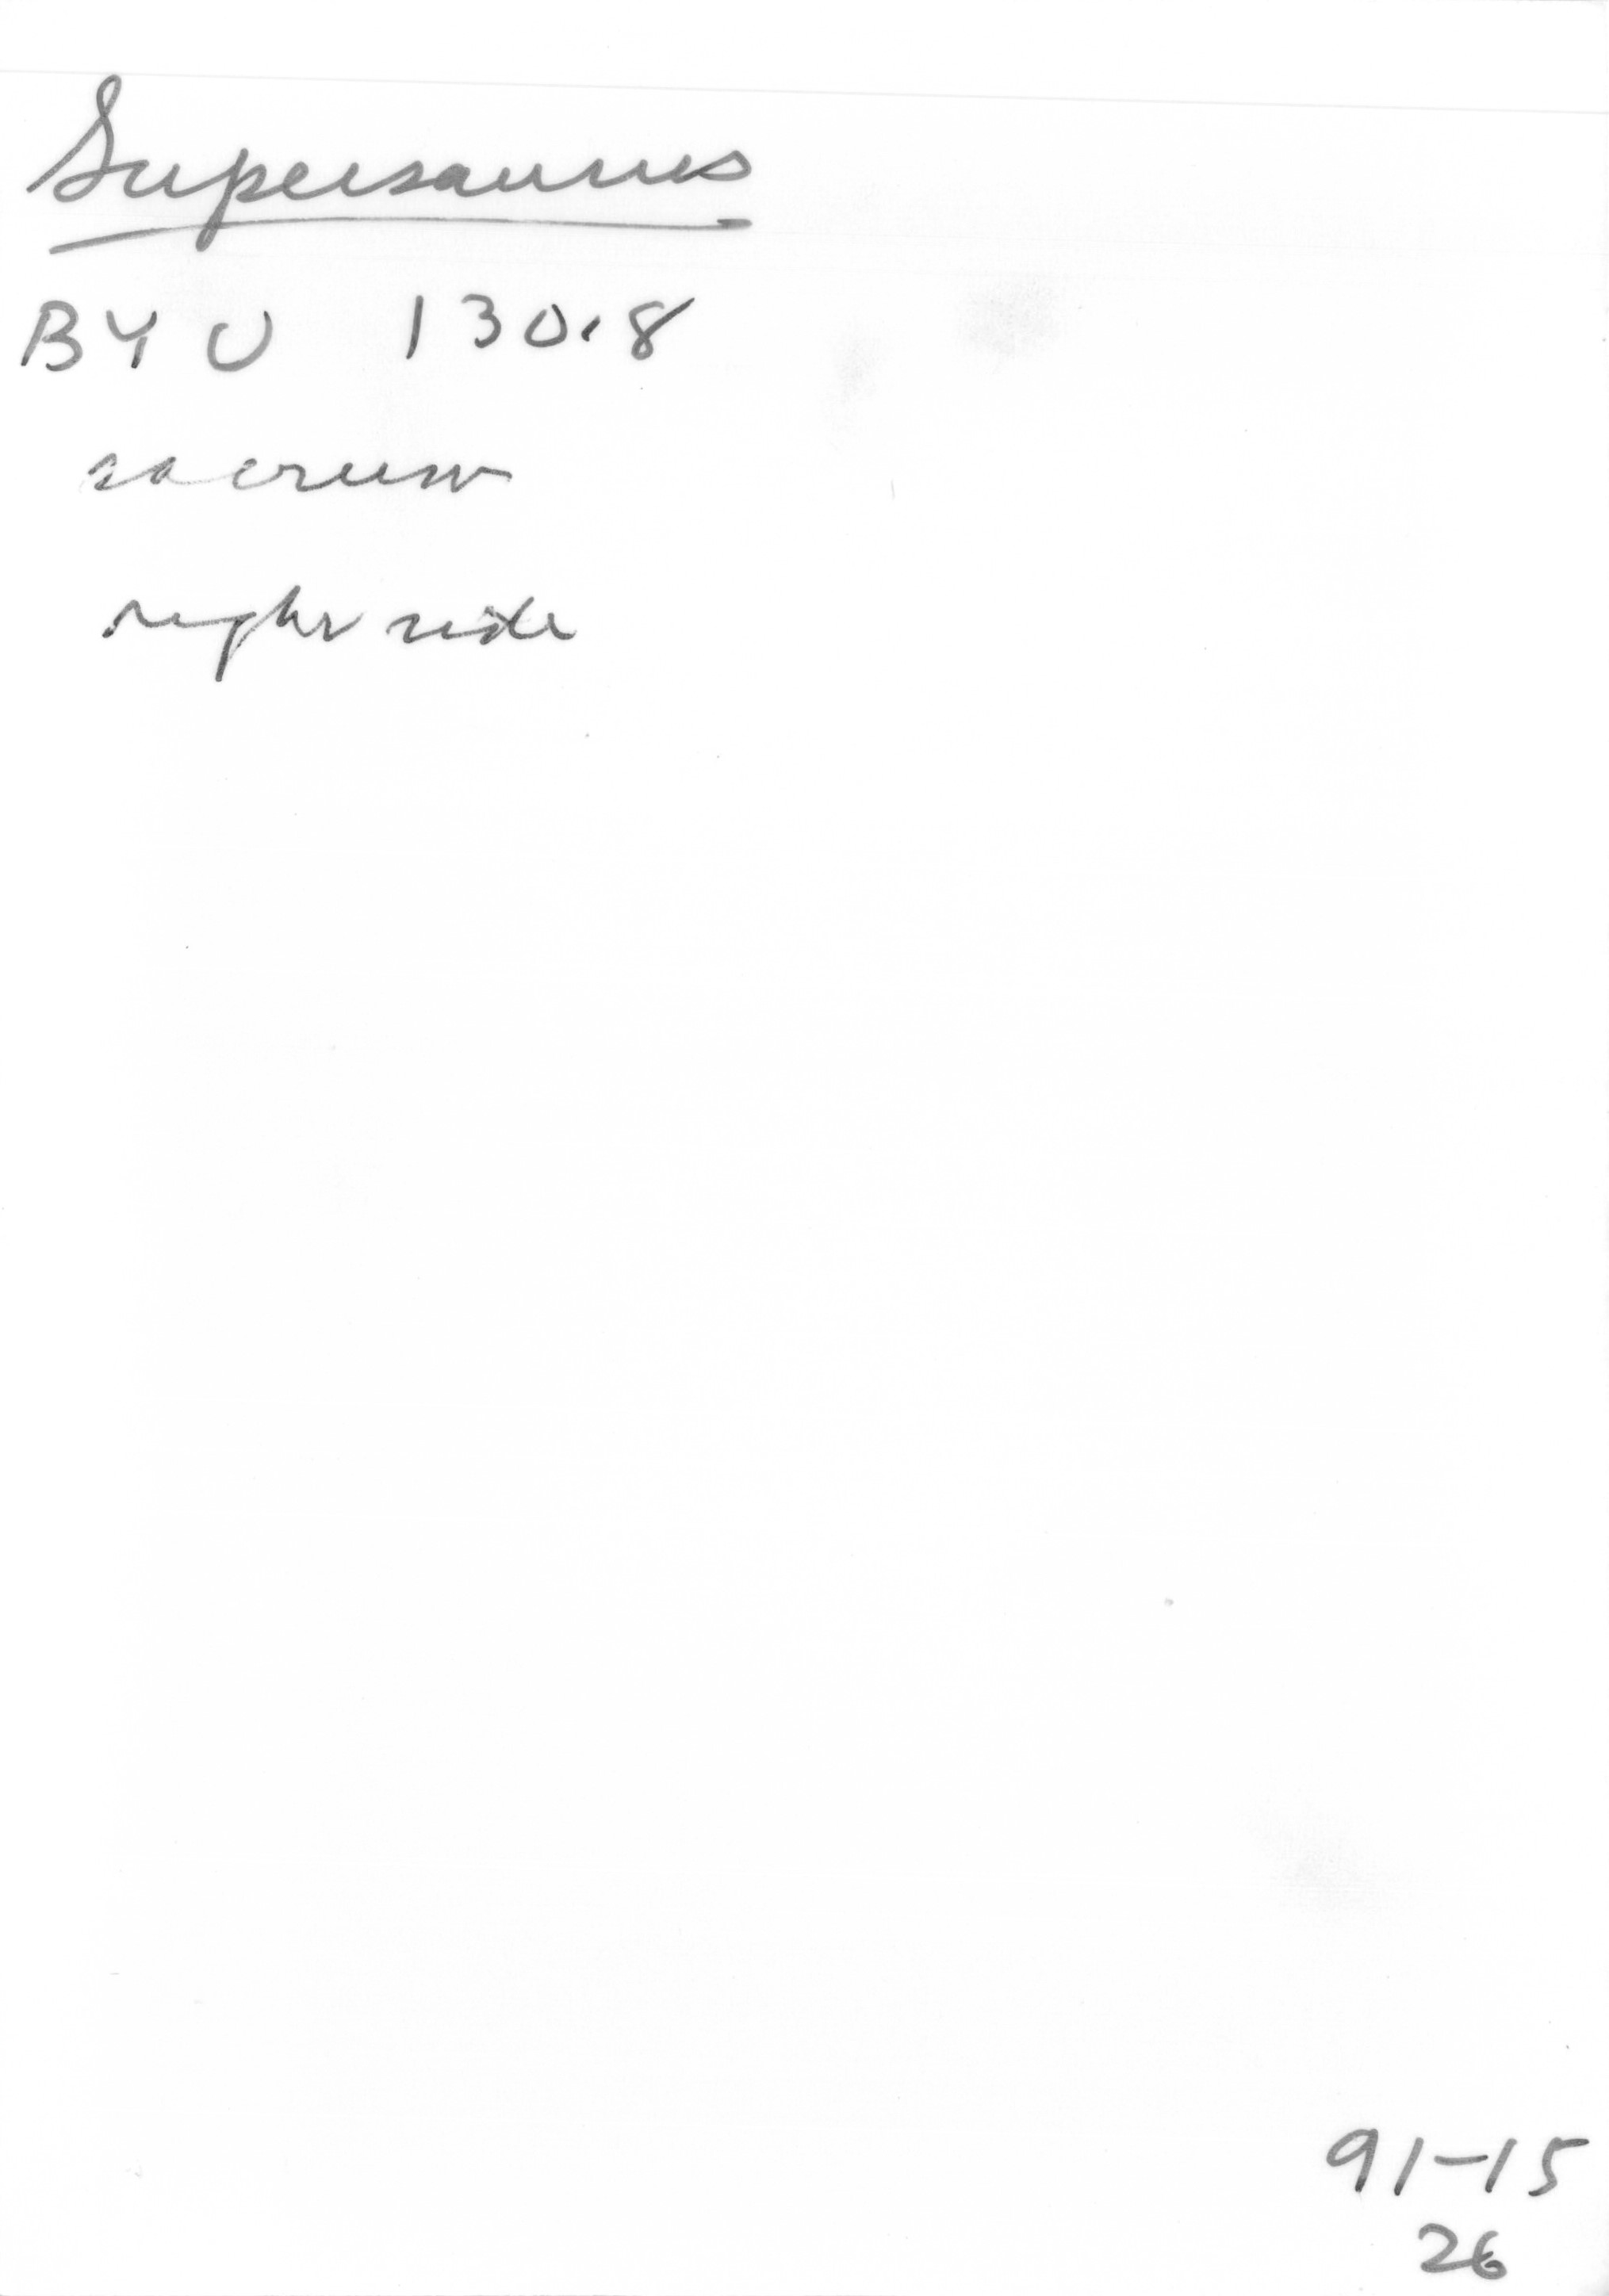 Supersaurus
BYU 13018
sacrum
right side
91-15
26